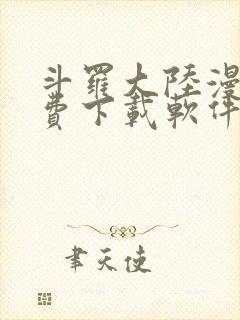 斗羅大陸漫
費下載軟件
聿天使